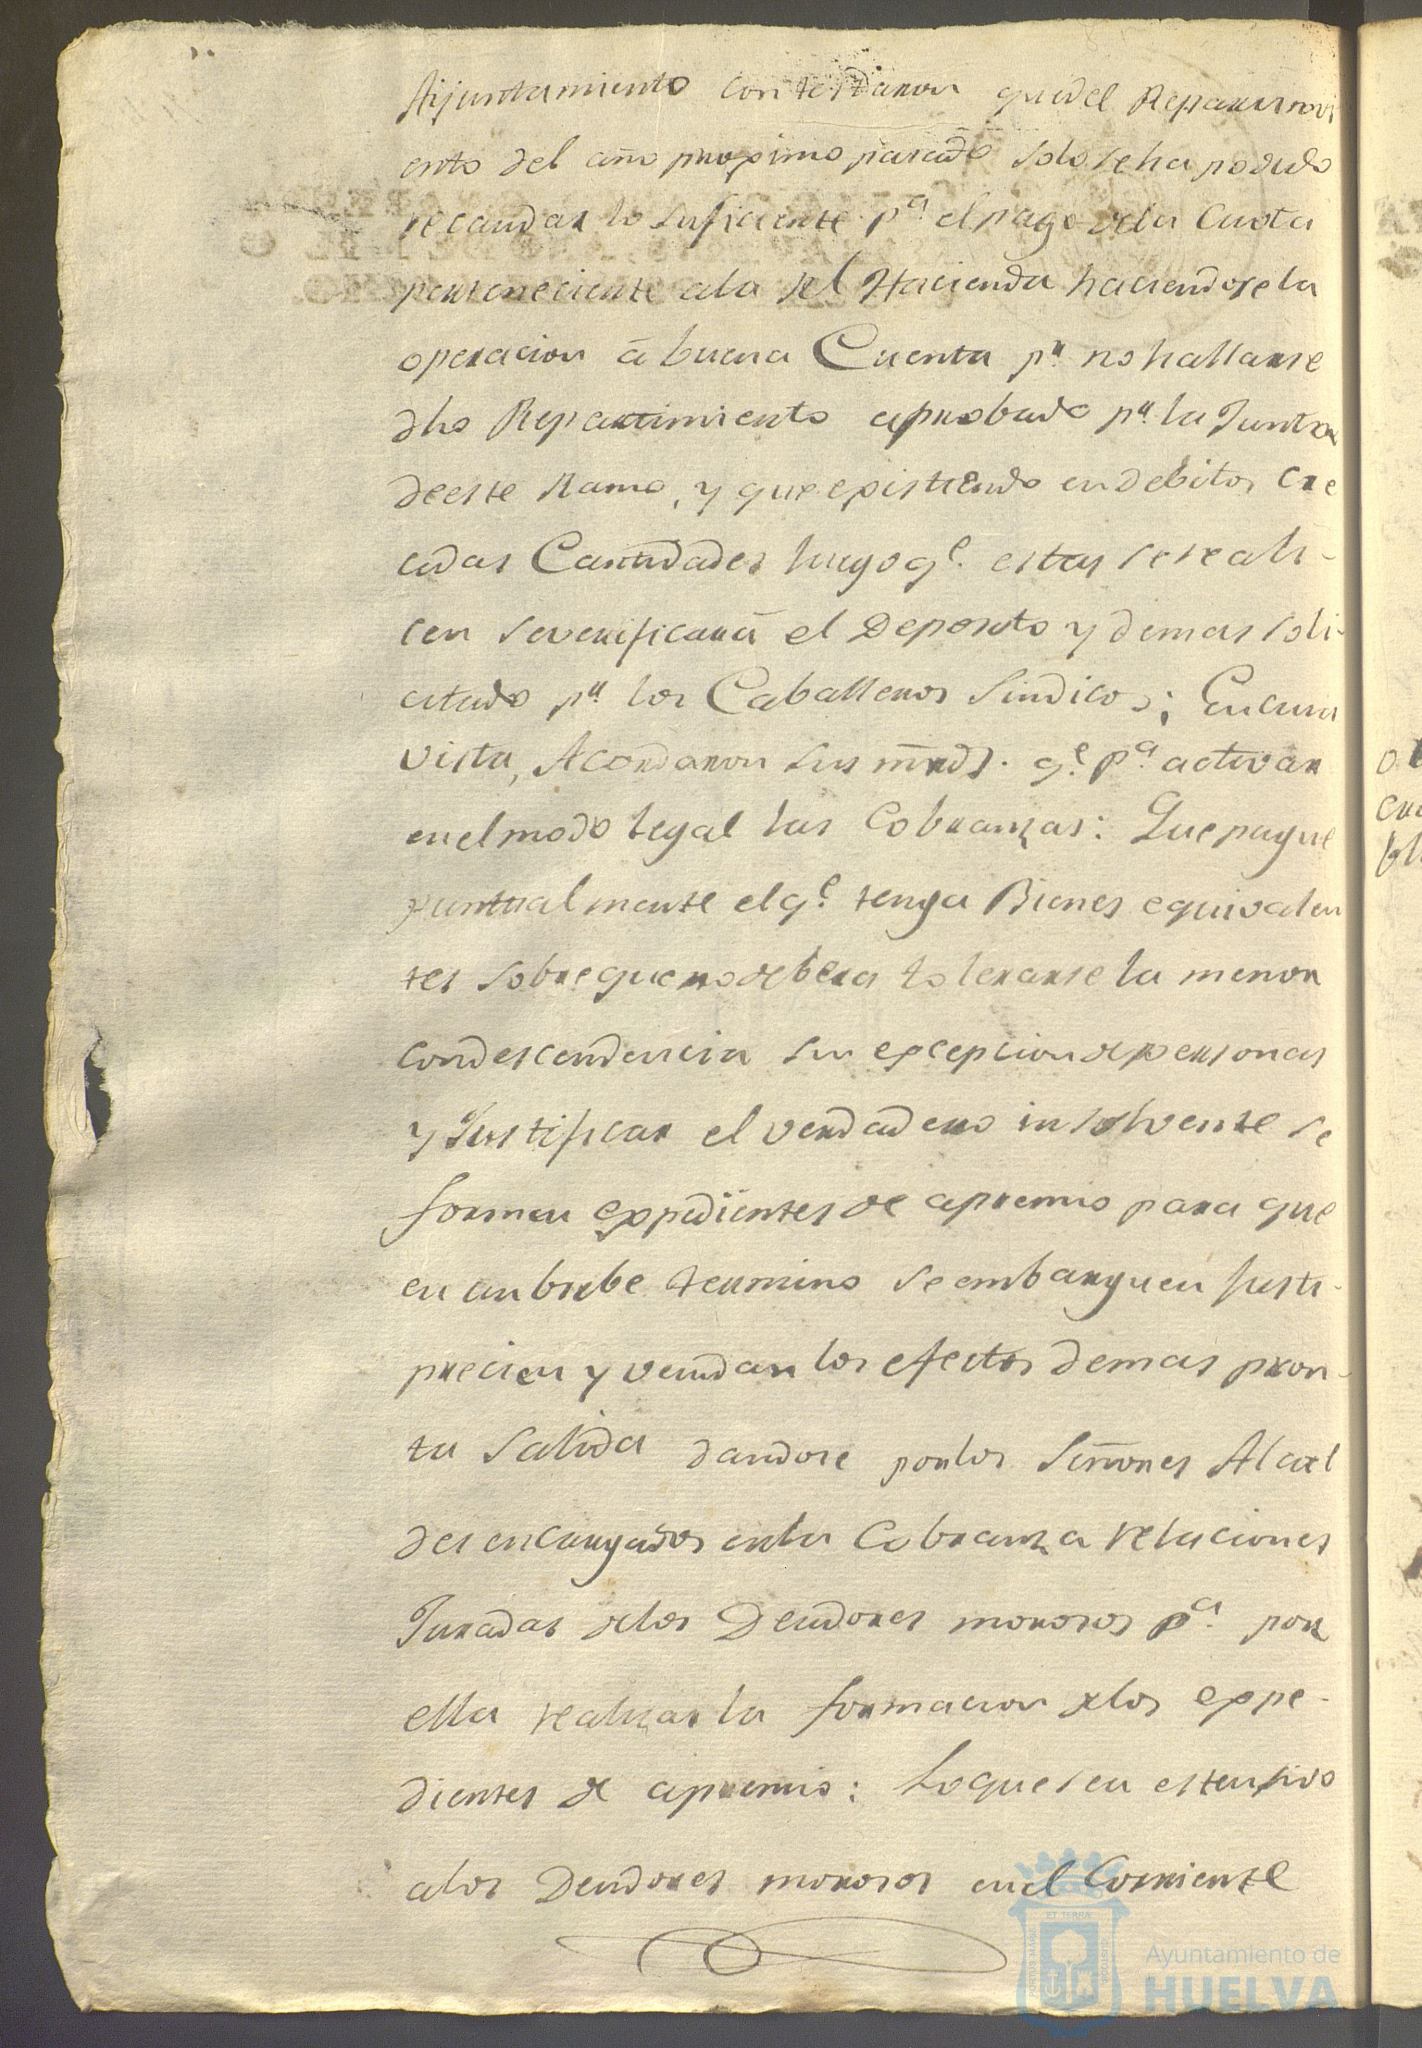 Aijuntamiento contestaron que del Repartimi
ento del año proximo pasado solo se ha podido
recaudar lo suficiente pª. el pago de la Cuota
perteneciente a la Rl Hacienda haciendose la
operacion á buena Cuenta pr. no hallarse
dho Repartimiento aprobado pr. la Junta
de este Ramo, y que existiendo en debitos cre
cidas Cantidades luego qe. estas se reali-
cen se verificará el Deposito y demas soli-
citado pr. los Caballeros Sindicos; En cuia
vista, Acordaron sus mrds. qe. pª. activar
en el modo legal las Cobranzas: Que pague
puntualmente el qe. tenga Bienes equivalen
tes sobre que no debera tolerarse la menor
condescendencia sin excepcion de personas
y Justificar el verdadero insolvente se
formen expedientes de apremio para que
en un brebe termino se embarguen Justi-
precien y vendan los efectos de mas pron-
ta salida dandose por los Señores Alcal
des encargados en la Cobranza relaciones
Juradas de los Deudores morosos pª. por
ella realizar la formacion de los expe-
dientes de apremio: Lo que sea estensivo
a los Deudores morosos en el Corriente
ET TERRA
Ayuntamiento de
HUELVA